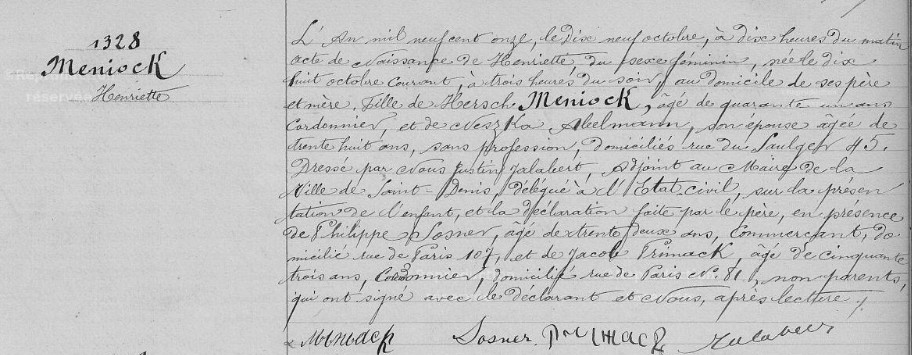 1328
Meniock
Henriette
L'An mil neuf cent onze, le dix neuf octobre, à dix heures du matin
acte de Naissance de Henriette, du sexe féminin, née le dix
huit octobre courant, à trois heures du soir, au domicile de ses père
et mère. Fille de Hersch Meniock, âgé de quarante un ans
Cordonnier, et de Neszka Abelmann, son épouse âgée de
trente huit ans, sans profession, domiciliés rue du Saulger 45.
Dressé par Nous Justin Jalabert, Adjoint au Maire de la
Ville de Saint-Denis délégué à l'Etat civil, sur la présen
tation de l'enfant, et la déclaration faite par le père, en présence
de Philippe Sosner, âgé de trente deux ans, Commerçant, do
micilié rue de Paris 107, et de Jacob Primack, âgé de cinquante
trois ans, Cordonnier, domicilié rue de Paris No. 81, non parents,
qui ont signé avec le déclarant et Nous, après lecture.
Sosner Primack Jalabert